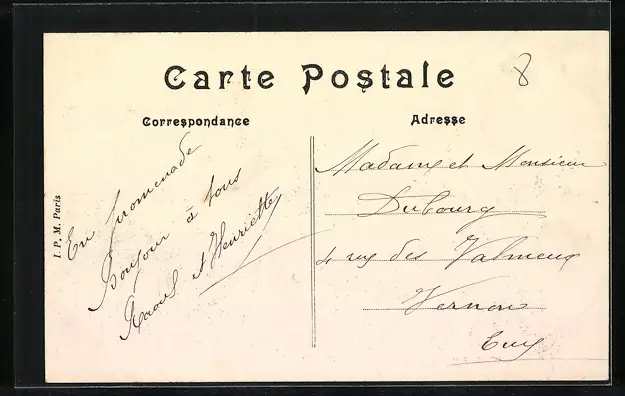 Carte Postale
8
Correspondance
Adresse
En promenade
Bonjour à tous
Raoul et Henriette
Madame et Monsieur
Dubourg
4 rue des Valmeux
Vernon
Eure
I. P. M. Paris